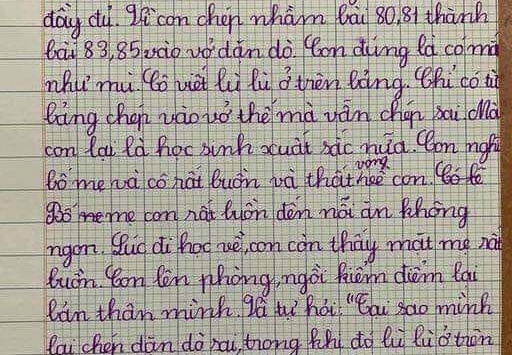 đầy đủ. Vì con chép nhầm bài 80,81 thành
bài 83,85 vào vở dặn dò. Con đúng là có mắ
như mù. Cô viết lù lù ở trên bảng. Chỉ có từ
bảng chép vào vở thế mà vẫn chép sai. Mà
con lại là học sinh xuất sắc nữa. Con nghĩ
bố mẹ và cô rất buồn và thất vọng về con. Có lẽ
Bố mẹ con rất buồn đến nỗi ăn không
ngon. Lúc đi học về, con còn thấy mặt mẹ rất
buồn. Con lên phòng, ngồi kiểm điểm lại
bản thân mình. Và tự hỏi: "Tại sao mình
lại chép dặn dò sai, trong khi đó lù lù ở trên